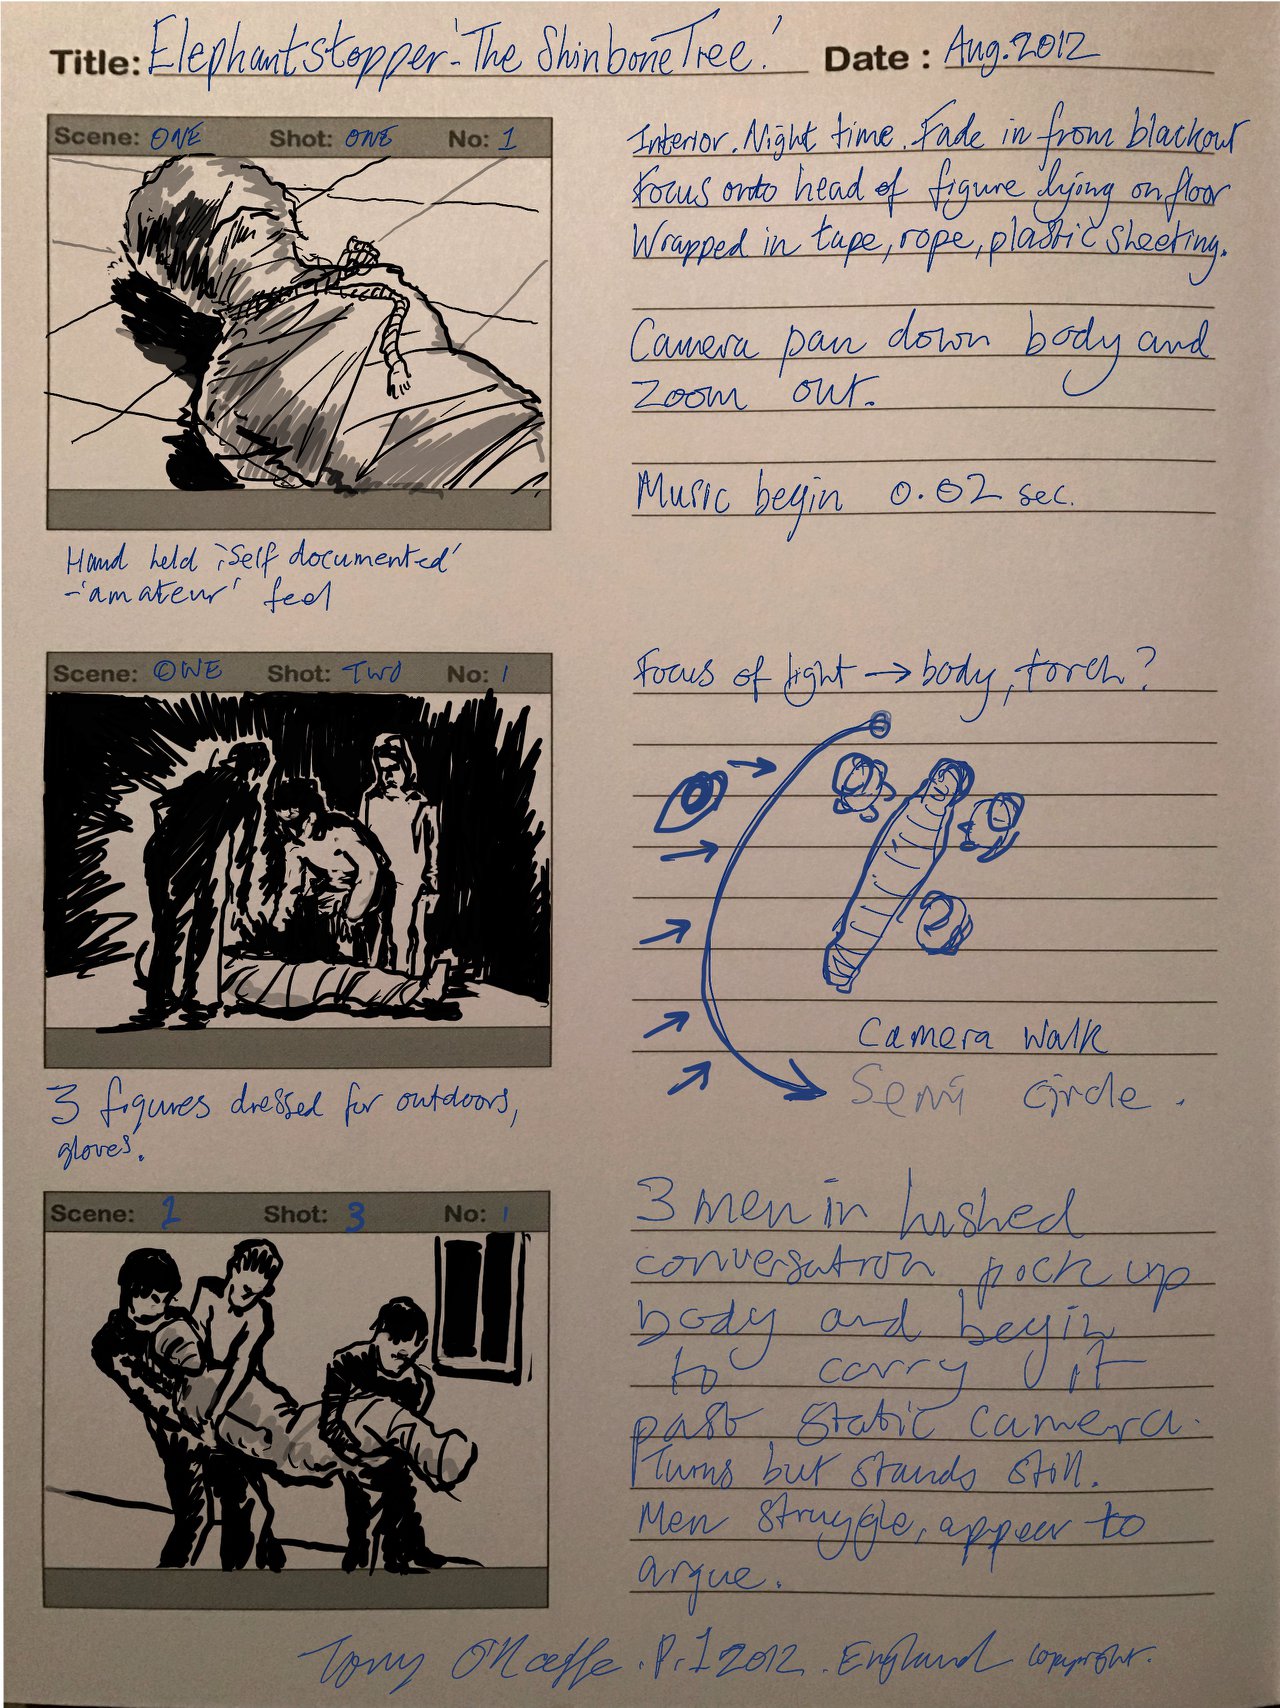 Title: Elephantstopper-'The Shinbone Tree.' Date: Aug. 2012
Scene: ONE Shot: ONE No: 1
Interior. Night time. Fade in from blackout
Focus onto head of figure lying on floor
Wrapped in tape, rope, plastic sheeting.
Camera pan down body and
zoom out.
Music begin 0.02 sec.
Hand held 'self documented'
-'amateur' feel
Scene: ONE Shot: TWO No: 1
Focus of light → body, torch?
Camera walk
Semi circle.
3 figures dressed for outdoors,
gloves.
Scene: 1 Shot: 3 No: 1
3 men in hushed
conversation pick up
body and begin
to carry it
past static camera.
Turns but stands still.
Men struggle, appear to
argue.
Tony O'Keeffe. P.1 2012. England copyright.